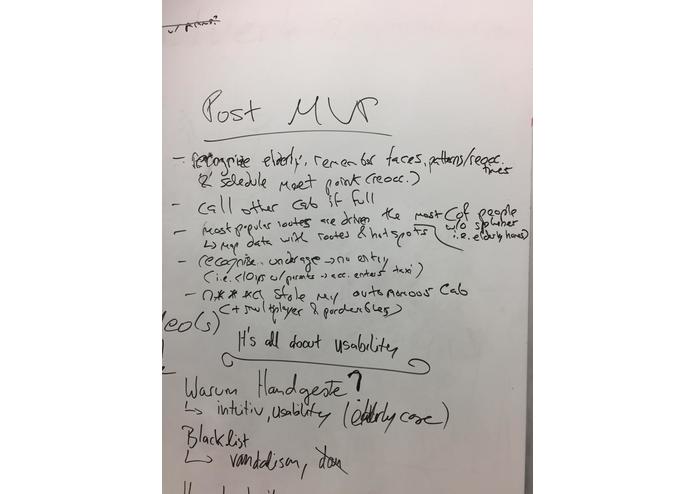 Post MVP
- recognize elderly, remember faces, patterns/reocc. times
& schedule meet point (reocc.)
- call other cab if full
- most popular routes are driven the most (of people w/o sphincter i.e. elderly homes)
↳ map data with routes & hotspots
- recognise underage → no entry
(i.e. <10ys w/ parents → acc. enters taxi)
- n***a stole my autonomous cab
(+ multiplayer &
eo(s)
It's all about usability
Warum Handgeste?
↳ intuitiv, usability (elderly case)
Blacklist
↳ vandalism,